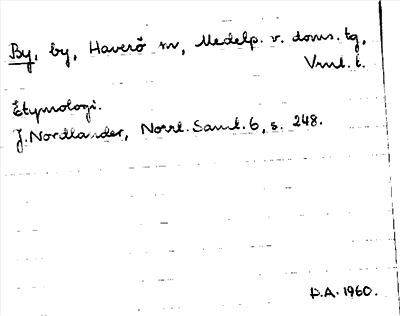 By, by, Haverö sn, Medelp. v. doms. tg,
Vrnl. l.
Etymologi.
J. Nordlander, Norrl. Saml. 6, s. 248.
D.A. 1960.